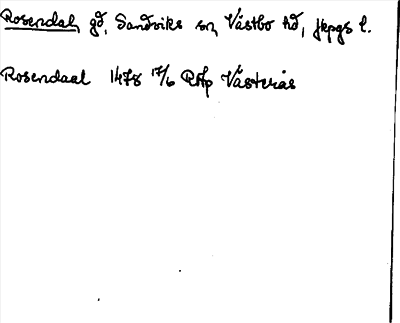 Rosendal, gd, Sandviks sn, Västbo hd, Jkpgs l.
Rosendaal 1478 17/6 RAp Västerås